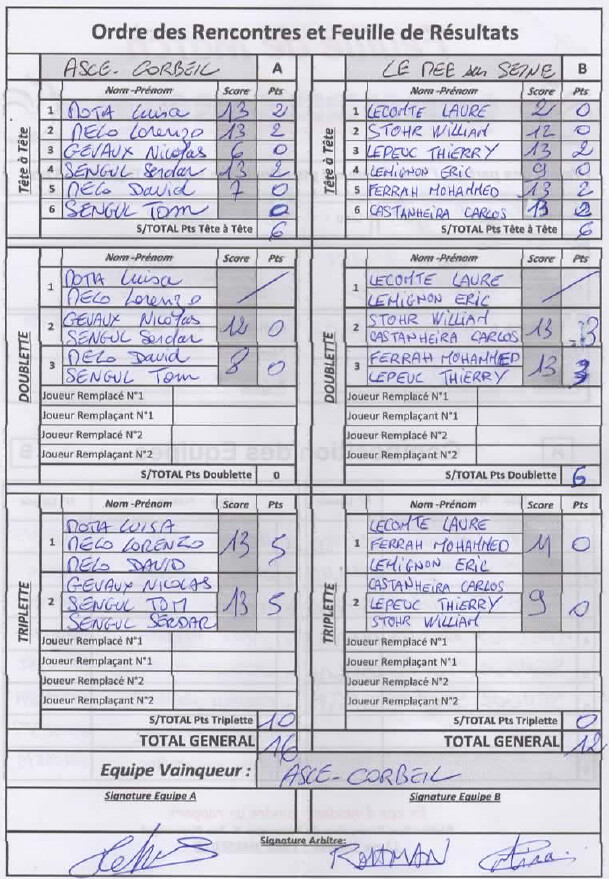 Ordre des Rencontres et Feuille de Résultats
ASCE-CORBEIL A
Nom -Prénom Score Pts
Tête à Tête
1 MOTA Luisa 13 2
2 MELO Lorenzo 13 2
3 GEVAUX Nicolas 6 0
4 SENGUL Serdar 13 2
5 MELO David 7 0
6 SENGUL Tom 0
S/TOTAL Pts Tête à Tête 6
LE MEE sur SEINE B
Nom -Prénom Score Pts
Tête à Tête
1 LECOMTE LAURE 2 0
2 STOHR WILLIAM 12 0
3 LEPEUC THIERRY 13 2
4 LEMIGNON ERIC 9 0
5 FERRAH MOHAMMED 13 2
6 CASTANHEIRA CARLOS 13 2
S/TOTAL Pts Tête à Tête 6
Nom -Prénom Score Pts
DOUBLETTE
1 MOTA Luisa
MELO Lorenzo
2 GEVAUX Nicolas 12 0
SENGUL Serdar
3 MELO David 8 0
SENGUL Tom
Joueur Remplacé N°1
Joueur Remplaçant N°1
Joueur Remplacé N°2
Joueur Remplaçant N°2
S/TOTAL Pts Doublette 0
Nom -Prénom Score Pts
DOUBLETTE
1 LECOMTE LAURE
LEMIGNON ERIC
2 STOHR WILLIAM 13 3
CASTANHEIRA CARLOS
3 FERRAH MOHAMMED 13 3
LEPEUC THIERRY
Joueur Remplacé N°1
Joueur Remplaçant N°1
Joueur Remplacé N°2
Joueur Remplaçant N°2
S/TOTAL Pts Doublette 6
Nom -Prénom Score Pts
TRIPLETTE
MOTA LUISA
1 MELO LORENZO 13 5
MELO DAVID
GEVAUX NICOLAS
2 SENGUL TOM 13 5
SENGUL SERDAR
Joueur Remplacé N°1
Joueur Remplaçant N°1
Joueur Remplacé N°2
Joueur Remplaçant N°2
S/TOTAL Pts Triplette 10
TOTAL GENERAL 16
Nom -Prénom Score Pts
TRIPLETTE
LECOMTE LAURE
1 FERRAH MOHAMMED 11 0
LEMIGNON ERIC
CASTANHEIRA CARLOS
2 LEPEUC THIERRY 9 0
STOHR WILLIAM
Joueur Remplacé N°1
Joueur Remplaçant N°1
Joueur Remplacé N°2
Joueur Remplaçant N°2
S/TOTAL Pts Triplette 0
TOTAL GENERAL 12
Equipe Vainqueur : ASCE-CORBEIL
Signature Equipe A Signature Equipe B
Signature Arbitre: